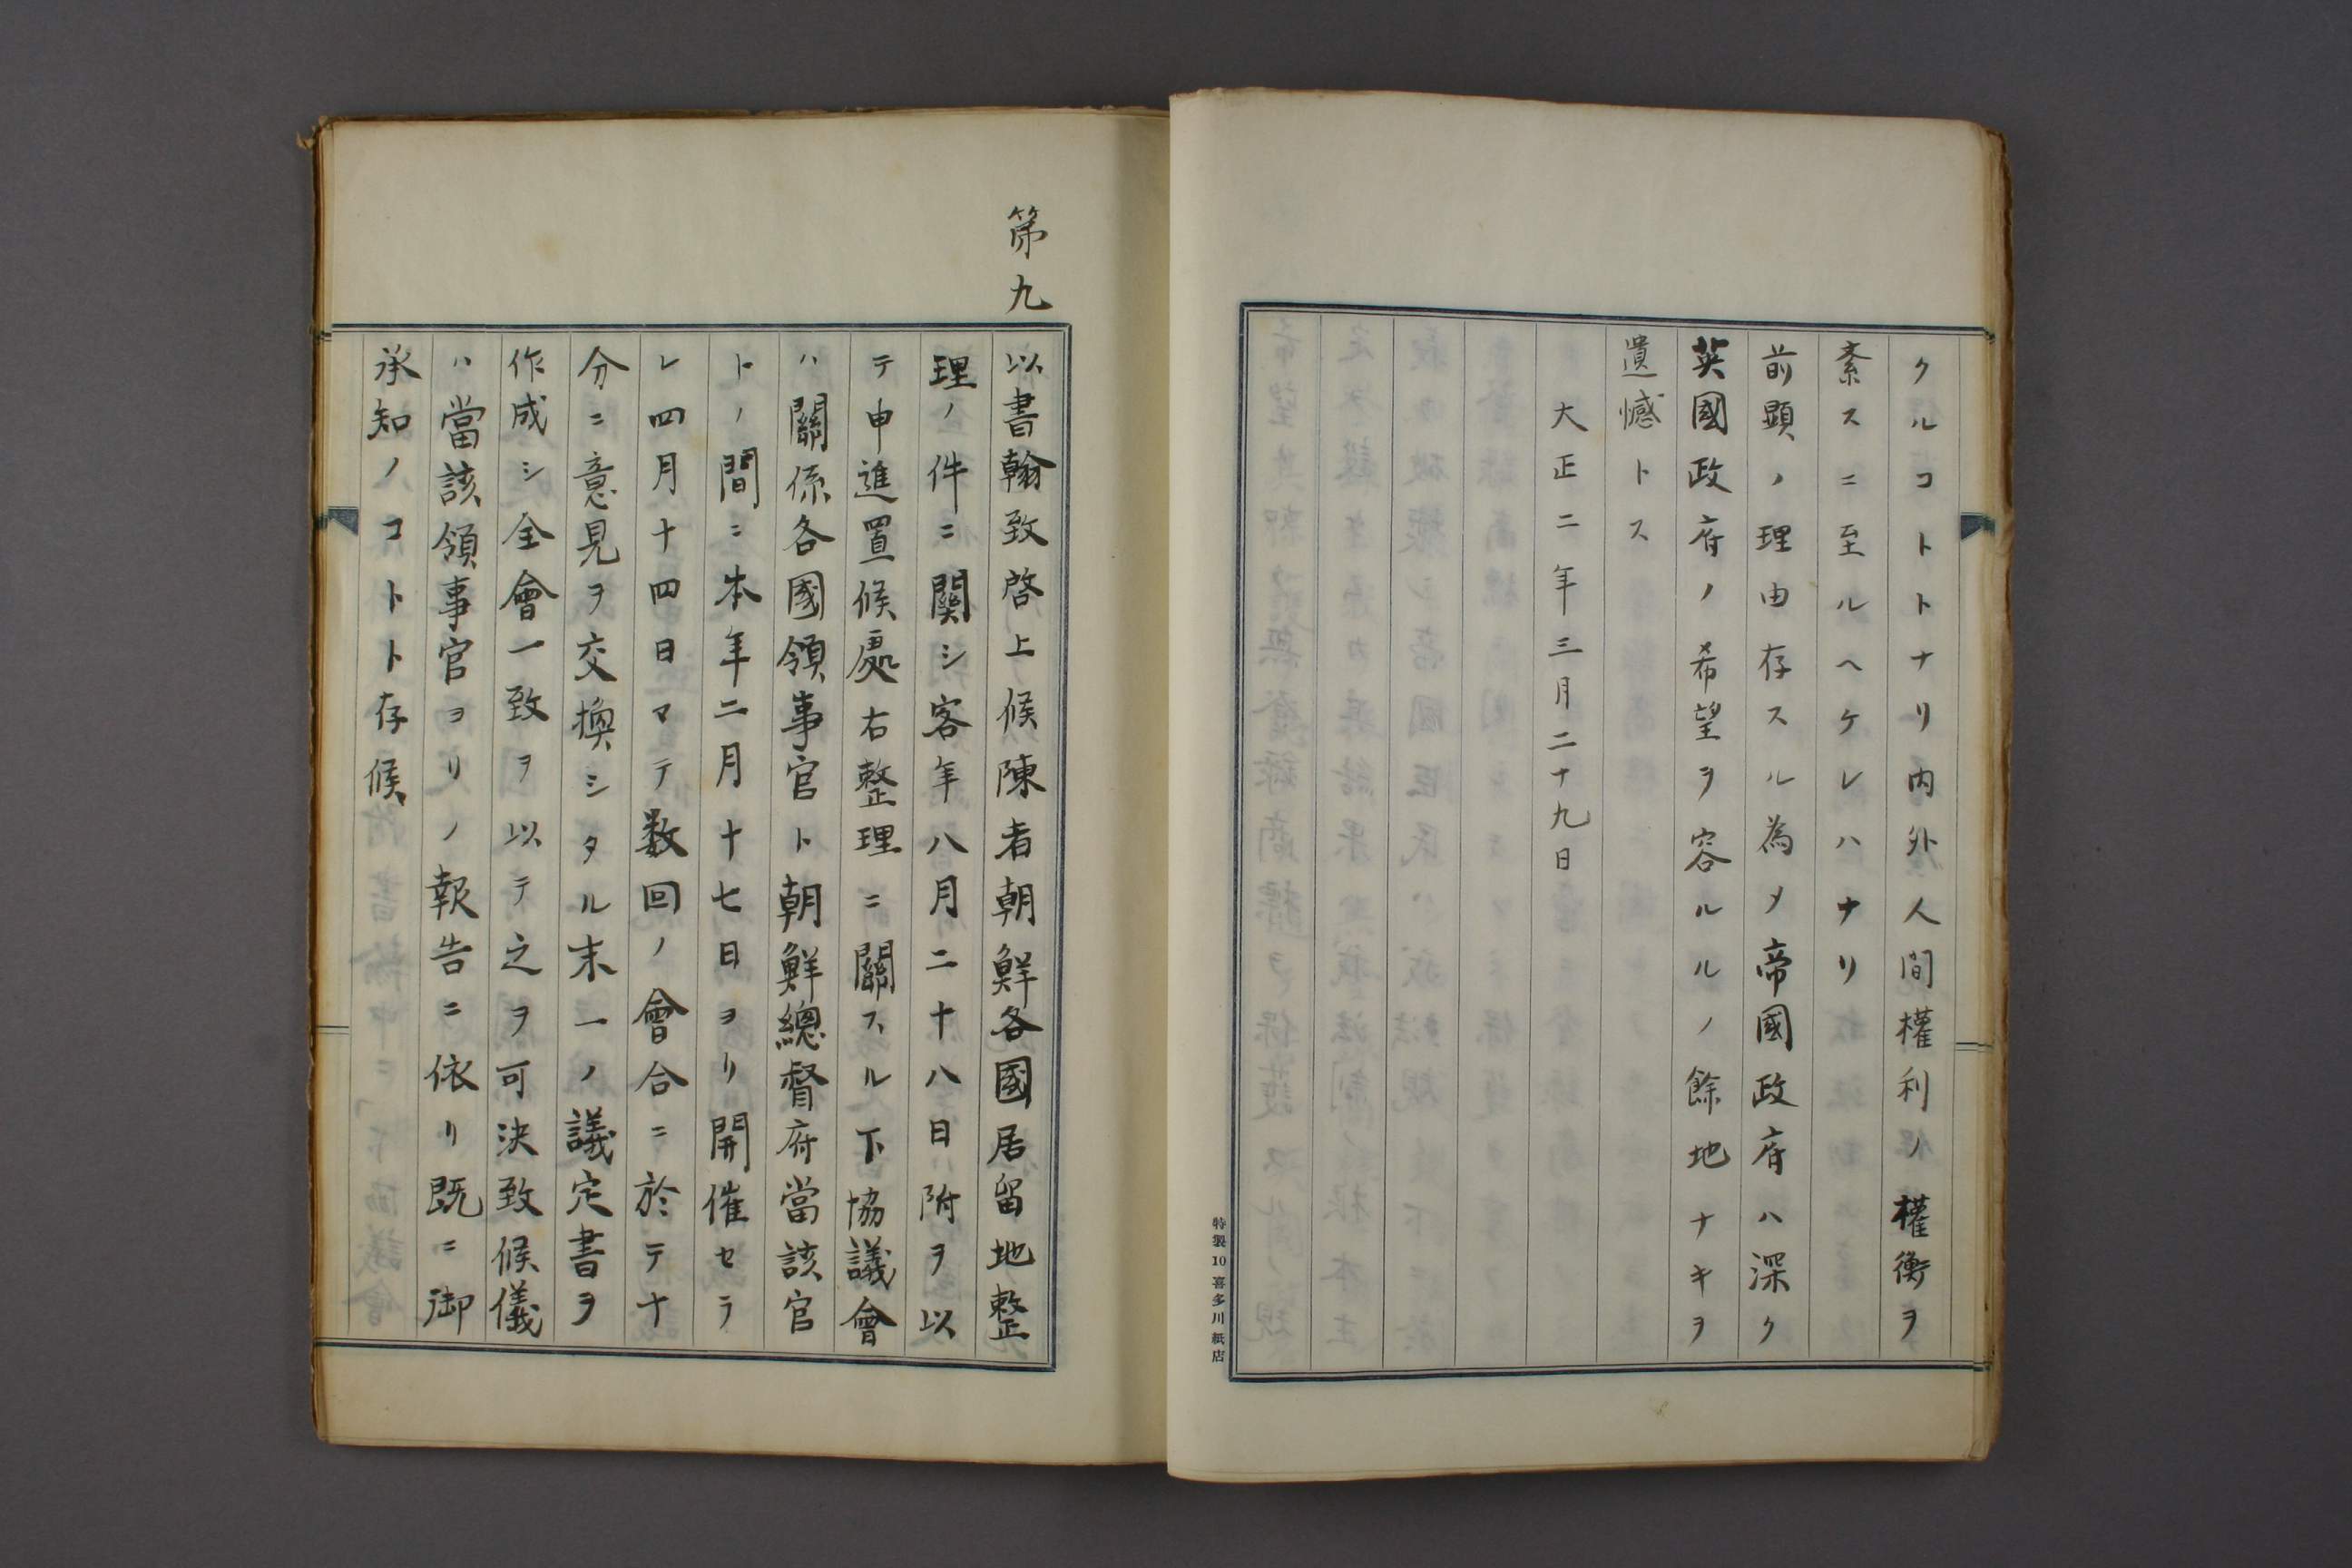 クルコトトナリ内外人間權利ノ權衡ヲ
紊スニ至ルヘケレハナリ
前顕ノ理由存スル為メ帝國政府ハ深ク
英國政府ノ希望ヲ容ルルノ餘地ナキヲ
遺憾トス
大正二年三月二十九日
特製10喜多川紙店
第九
以書翰致啓上候陳者朝鮮各國居留地整
理ノ件ニ關シ客年八月二十八日附ヲ以
テ申進置候處右整理ニ關スル下協議會
ハ關係各國領事官ト朝鮮總督府當該官
トノ間ニ本年二月十七日ヨリ開催セラ
レ四月十四日マテ数回ノ會合ニ於テナ
分ニ意見ヲ交換シタル末一ノ議定書ヲ
作成シ全會一致ヲ以テ之ヲ可決致候儀
ハ當該領事官ヨリノ報告ニ依リ既ニ御
承知ノコトト存候